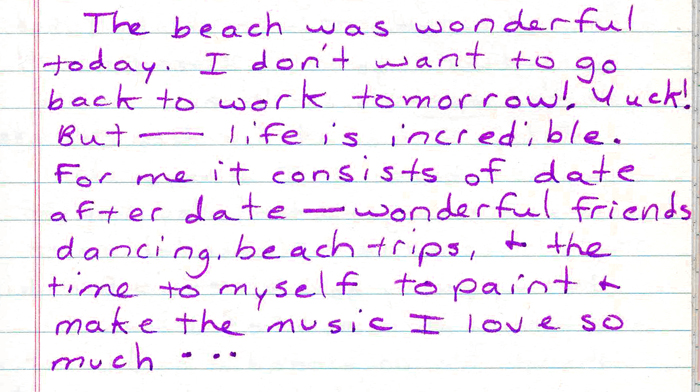 The beach was wonderful
today. I don't want to go
back to work tomorrow! Yuck!
But — life is incredible.
For me it consists of date
after date — wonderful friends
dancing, beach trips, & the
time to myself to paint &
make the music I love so
much ...